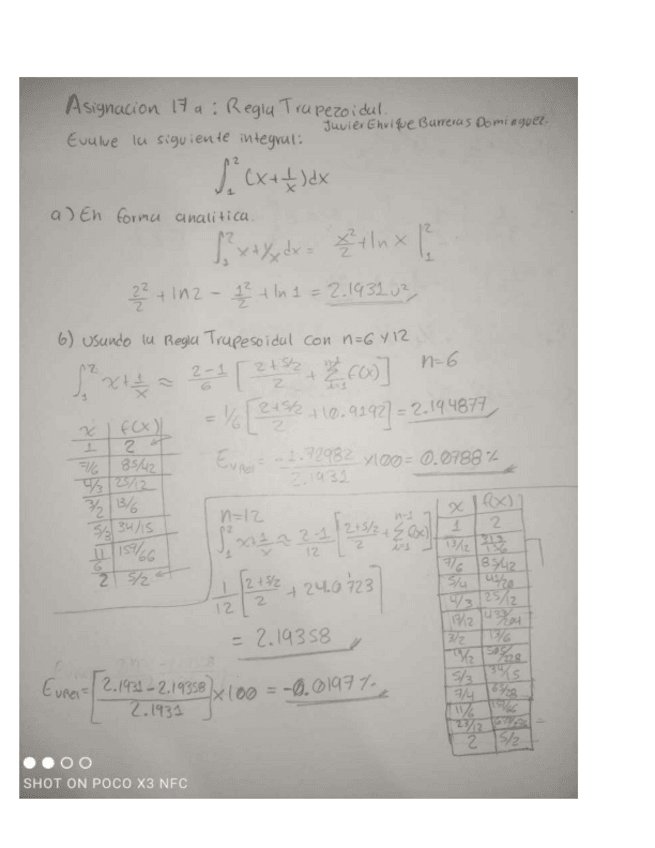 Asignacion 17a: Regla Trapezoidal.
Javier Enrique Barreras Dominguez.
Evalue la siguiente integral:
∫₁² (x+1/x)dx
a) En forma analitica.
∫₁² x+1/x dx = x²/2 + ln x |₁²
2²/2 + ln2 - 1²/2 + ln 1 = 2.1931 u²
b) Usando la Regla Trapesoidal con n=6 y 12
∫₁² x+1/x ≈ 2-1/6 [2+5/2/2 + Σ f(x)] n=6
= 1/6 [2+5/2/2 + 10.9192] = 2.194877
x f(x)
1 2
7/6 85/42
4/3 25/12
3/2 13/6
5/3 34/15
11/6 157/66
2 5/2
2.1931 x100 = 0.0788%
n=12
∫₁² x+1/x ≈ 2-1/12 [2+5/2/2 + Σ f(x)]
1/12 [2+5/2/2 + 24.0723]
= 2.19358
x f(x)
1 2
13/12
7/6 85/42
5/4
4/3 25/12
3/2 13/6
5/3 34/15
7/4
11/6
23/12
2 5/2
[2.1931-2.19358/2.1931] x100 = -0.0197%
SHOT ON POCO X3 NFC